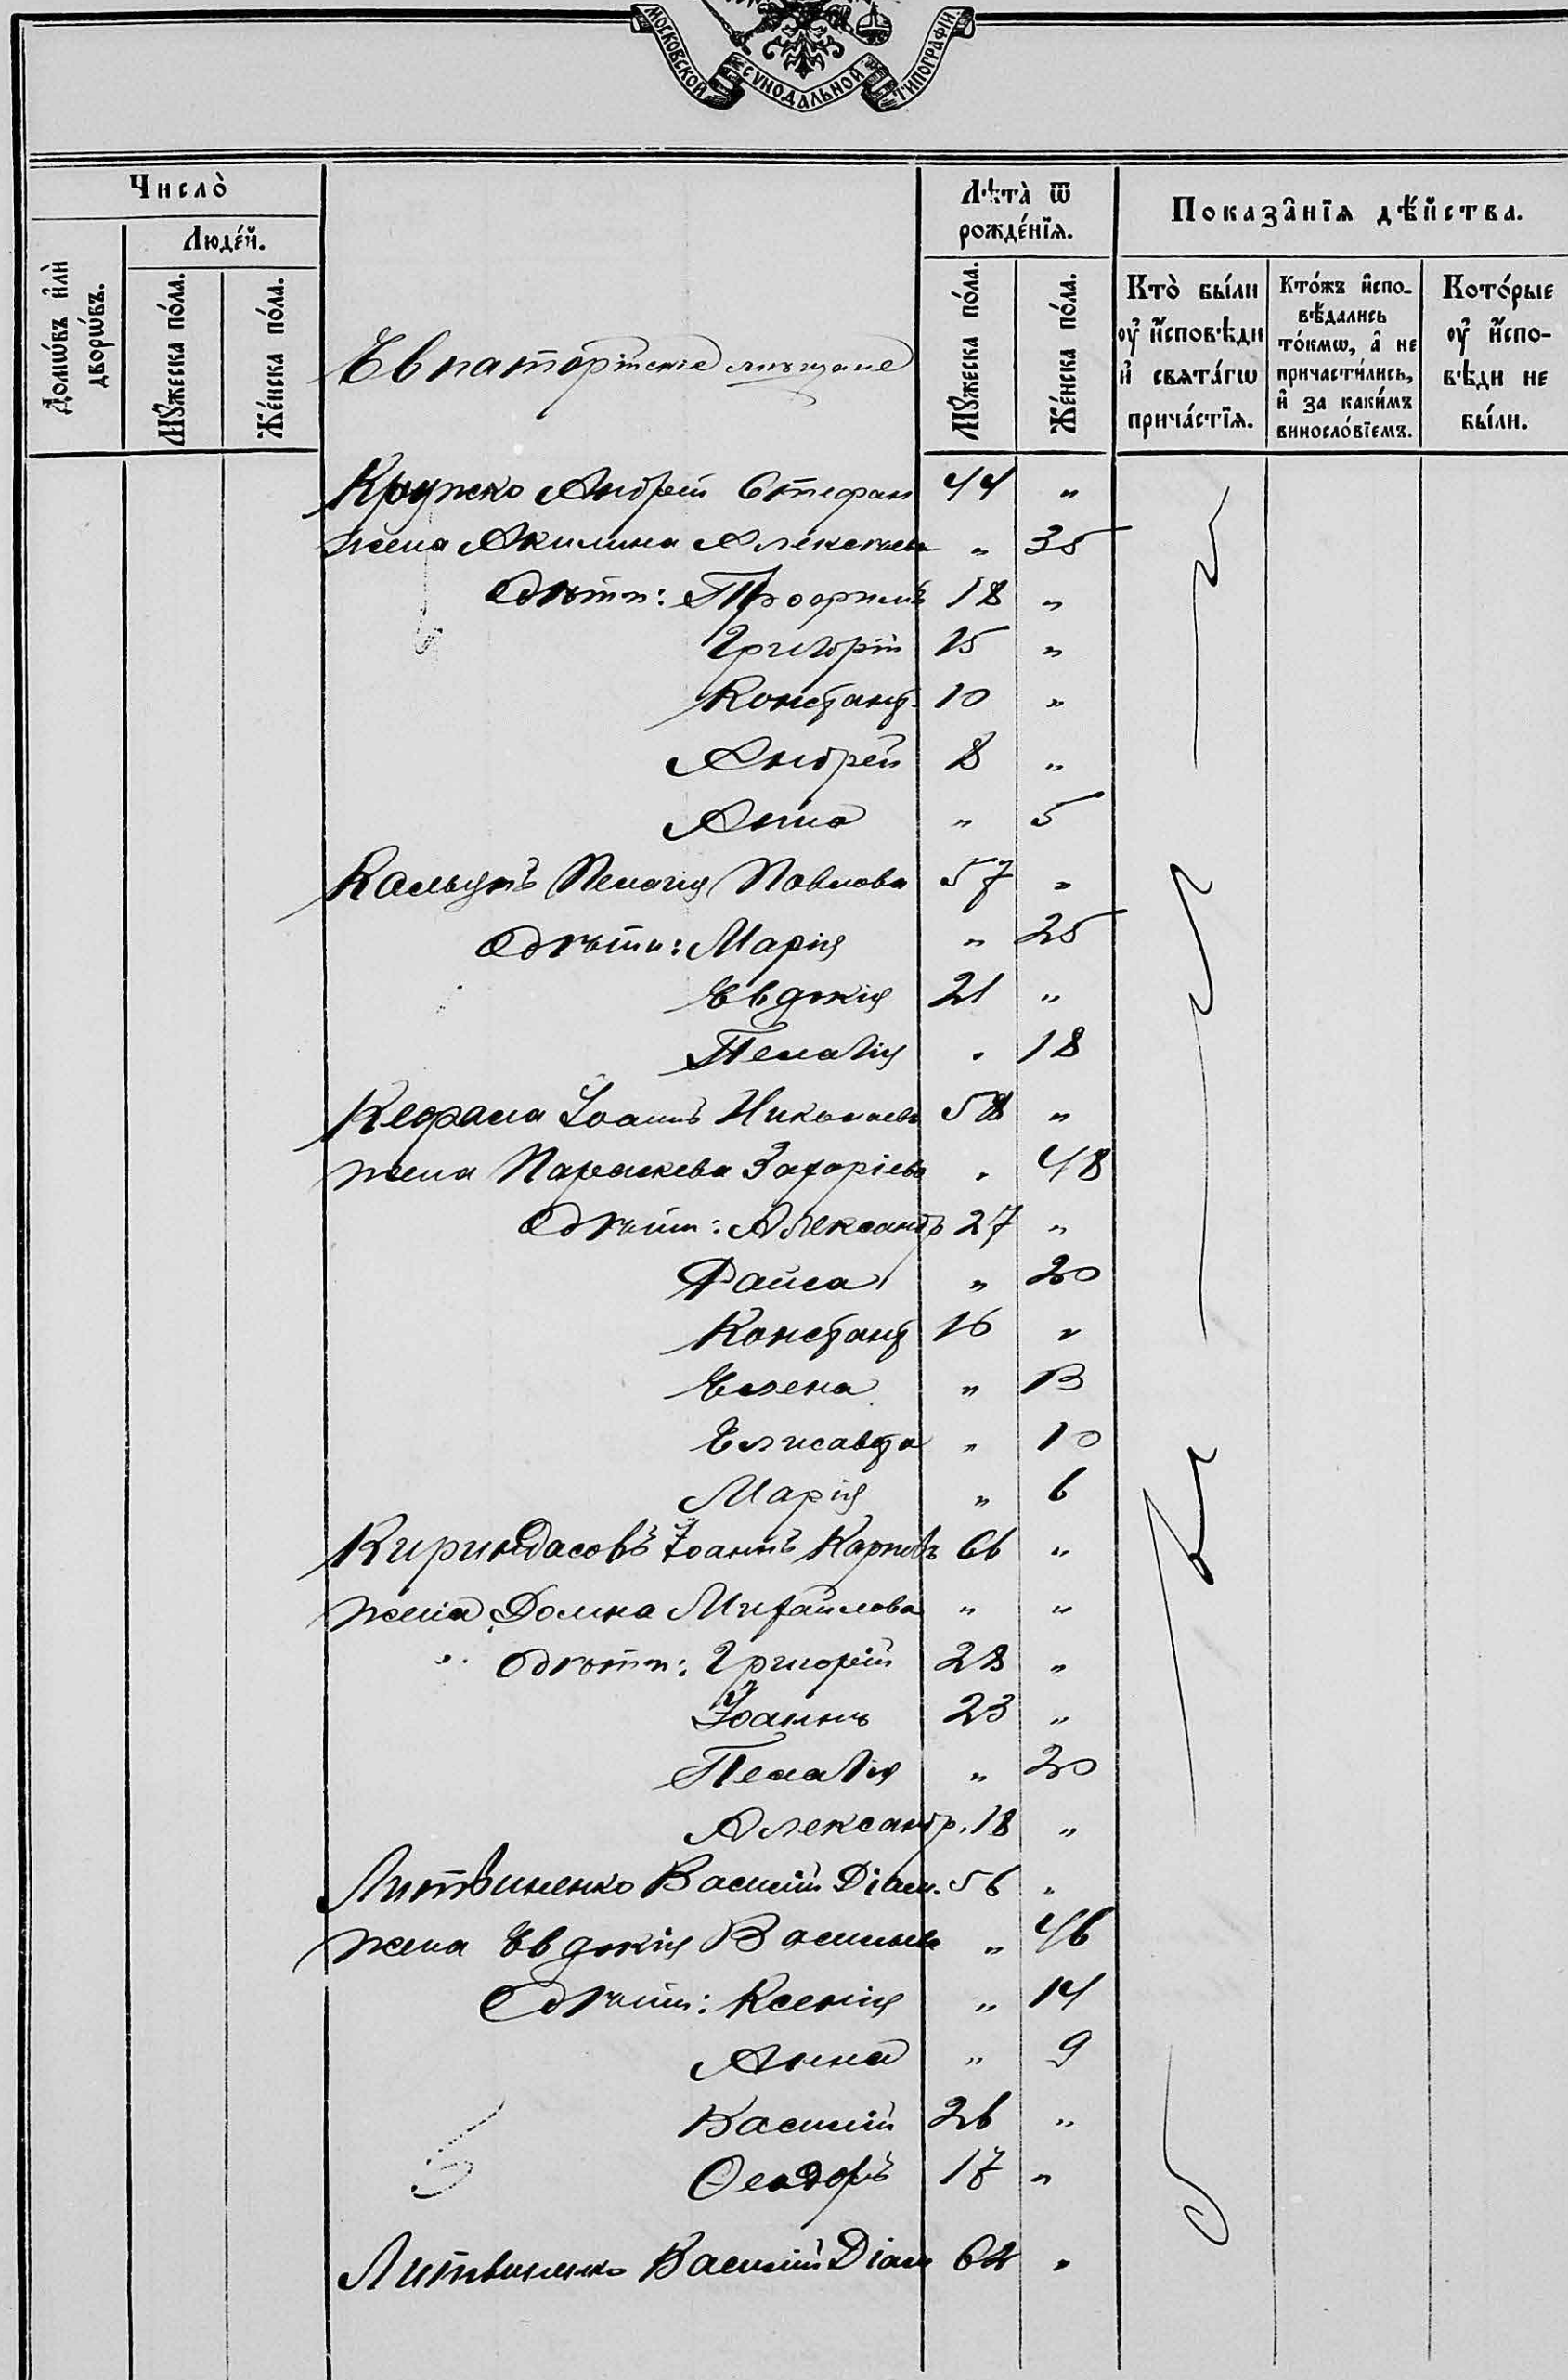 МОСКОВСКОЙ СѴНОДАЛЬНОЙ ТИПОГРАФІИ.
Число̀
Домѡ́въ и҆лѝ дворѡ́въ.
Люде́й.
Мꙋ́жеска по́ла.
Же́нска по́ла.
Лѣ́та̀ ѿ рожде́нїѧ.
Мꙋ́жеска по́ла.
Же́нска по́ла.
Показа̑нїѧ дѣ́йства.
Кто̀ бы́ли оу҆ и҆сповѣди и҆ свята́гѡ прича́стїѧ.
Кто́жъ и҆сповѣ́дались то́кмѡ, а҆ не причасти́лись, и҆ за каки́мъ виносло́вїемъ.
Кото́рые оу҆ и҆сповѣди не бы́ли.
Евпаторiйскiе мѣщане
Кружко Андрей Стефан 44 "
жена Акилина Алексѣева " 35
дѣти: Трофимъ 18 "
Григорій 15 "
Констант. 10 "
Андрей 8 "
Анна " 5
Пелагія Павлова 57 "
дѣти: Марія " 25
Евдокія 21 "
Пелагія " 18
Кефала Іоаннъ Николаевъ 58 "
жена Параскева Захаріева " 48
дѣти: Александръ 27 "
Раиса " 20
Констант 16 "
Елена " 13
Елисавета " 10
Марія " 6
Кириндасовъ Іоаннъ Карповъ 66 "
жена Домна Михайлова " "
дѣти: Григорій 28 "
Іоаннъ 23 "
Пелагія " 20
Александр. 18 "
Литвиненко Василій Діом. 56 "
жена Евдокія Васильева " 46
дѣти: Ксенія " 14
Анна " 9
Василій 26 "
Ѳеодоръ 17 "
Литвиненко Василій Діом 62 "